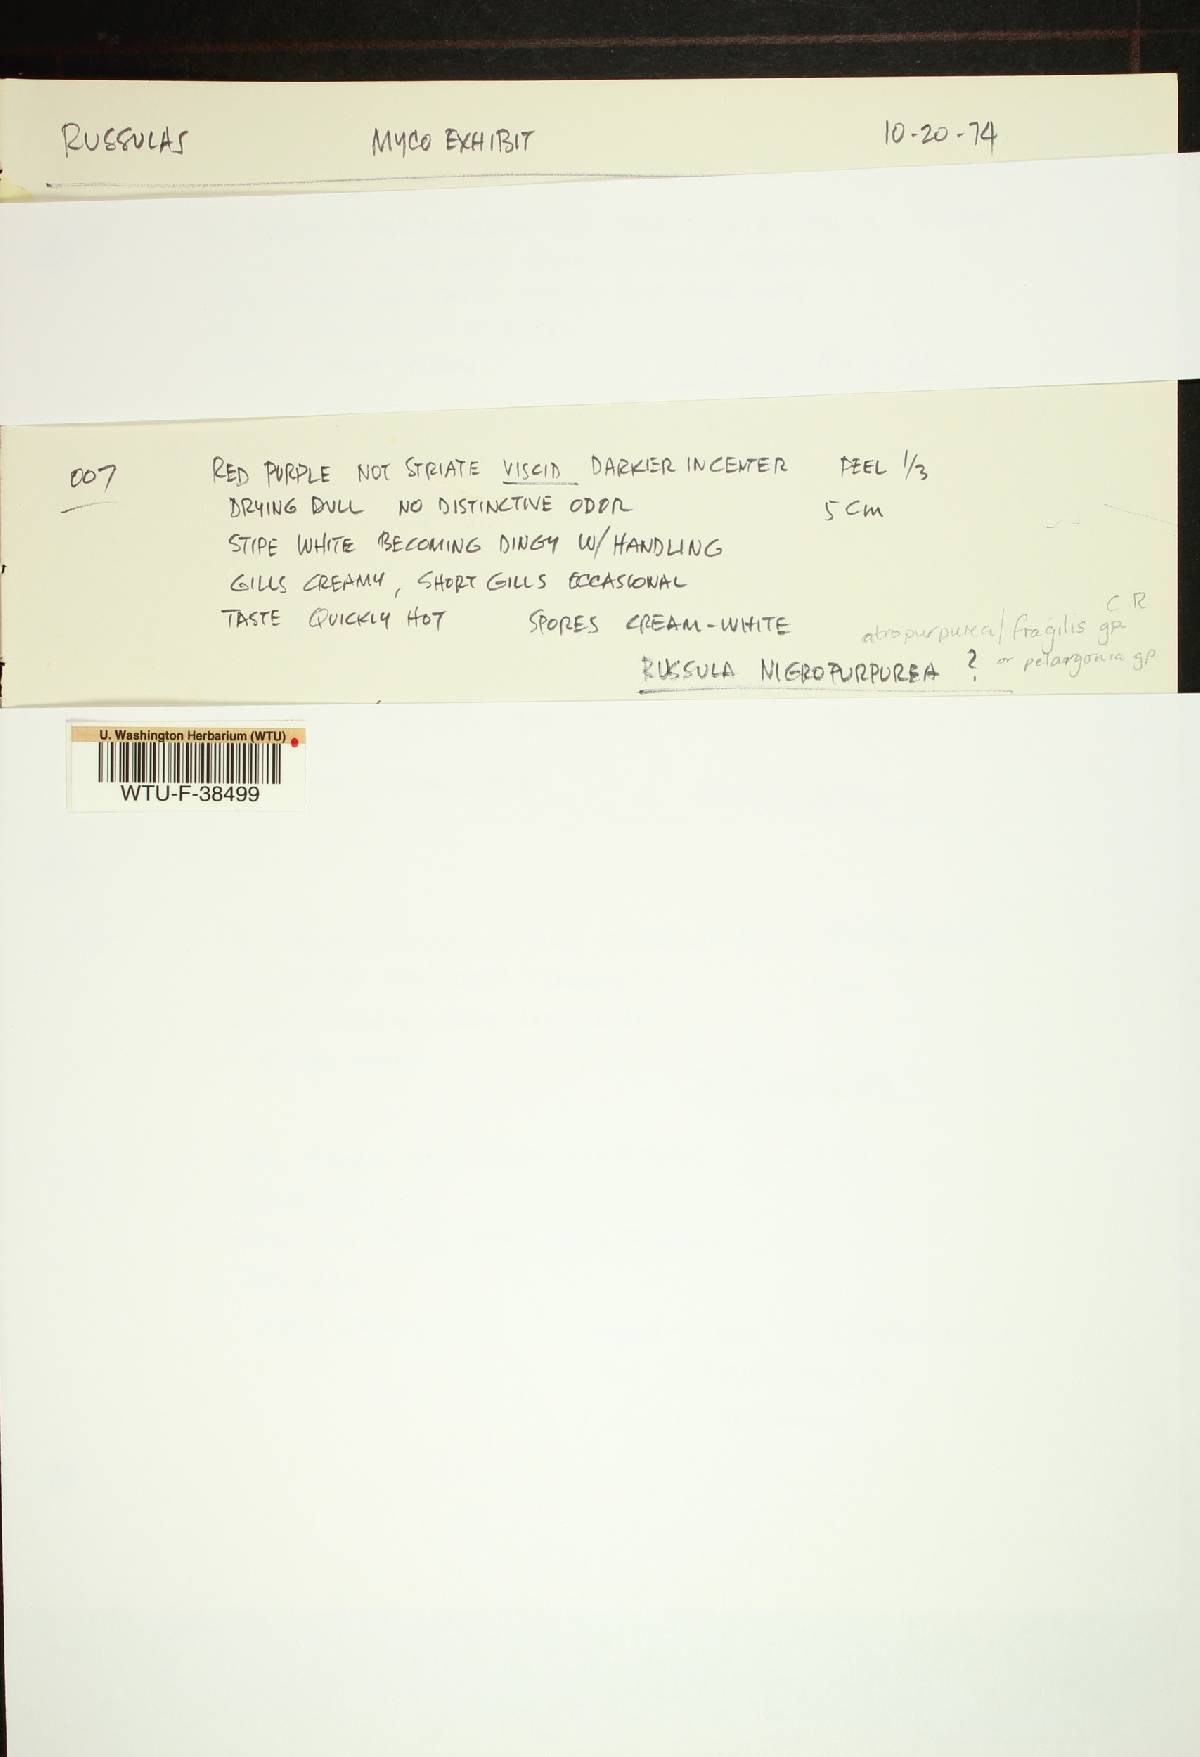 RUSSULAS MYCO EXHIBIT 10-20-74
007 RED PURPLE NOT STRIATE VISCID DARKER IN CENTER PEEL 1/3
DRYING DULL NO DISTINCTIVE ODOR 5 cm
STIPE WHITE BECOMING DINGY W/ HANDLING
GILLS CREAMY, SHORT GILLS OCCASIONAL
TASTE QUICKLY HOT SPORES CREAM-WHITE
C.R
atropurpurea/fragilis gp.
RUSSULA NIGROPURPUREA ? or pelargonia gp.
U. Washington Herbarium (WTU)
WTU-F-38499